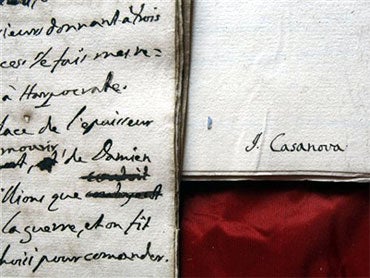 ieurs donnant à trois
Je fais mes re=
à Harpocrate.
lace de l'epaisseur
mourir
de Damien
illions que
la guerre, et on fit
hoisi pour comander.
J. Casanova